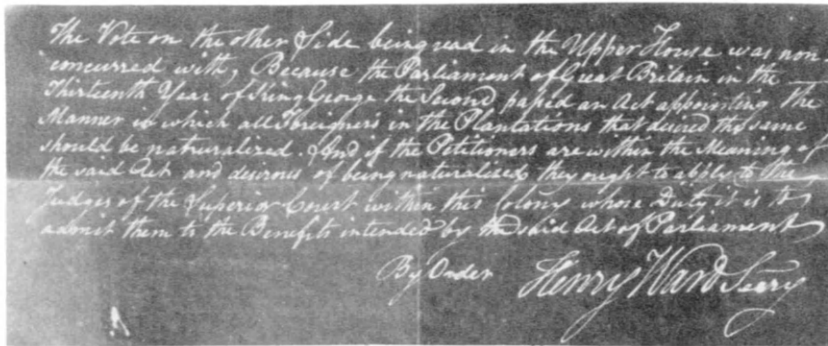 The Vote on the other Side being read in the Upper House was non-
concurred with, Because the Parliament of Great Britain in the
Thirteenth Year of King George the Second, passed an Act appointing the
Manner in which all Foreigners in the Plantations that desired the same
should be natruralized. And if the Petitioners are within the Meaning of
the said Act and desirous of being naturalised they ought to apply to the
Judges of the Superior Court within this Colony whose Duty it is to
admit them to the Benefits intended by the said Act of Parliament
By Order Henry Ward Secry